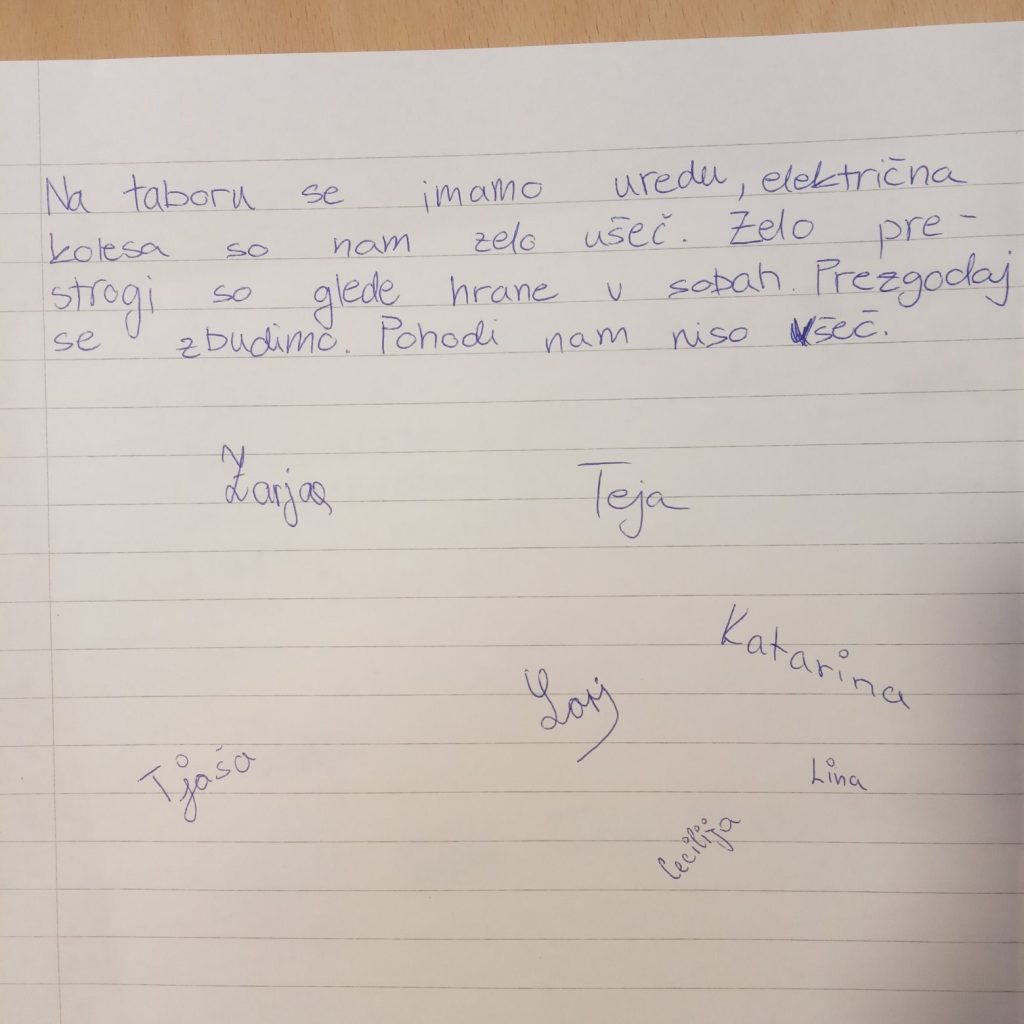 Na taboru se imamo uredu, električna
kolesa so nam zelo ušeč. Zelo pre-
strogi so glede hrane v sobah. Prezgodaj
se zbudimo. Pohodi nam niso všeč.
Teja
Katarina
Tjaša
Lina
Cecilija